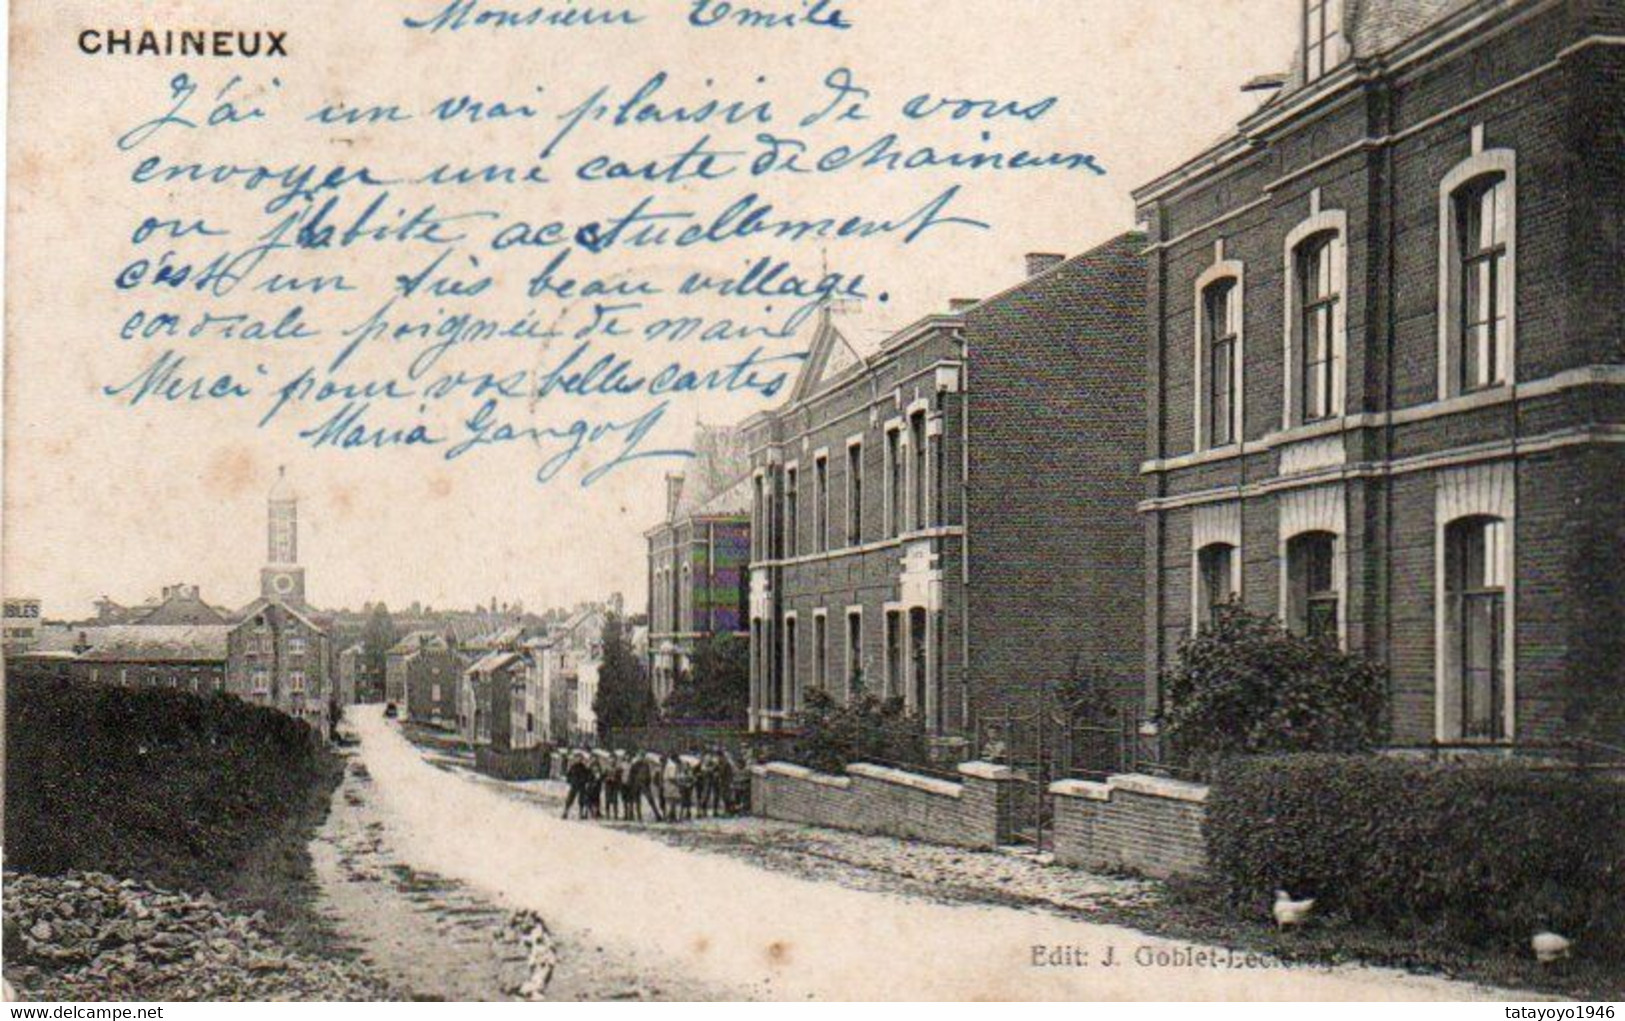 Monsieur Emile
CHAINEUX
J'ai un vrai plaisir de vous
envoyer une carte de chaineux
ou j'habite acctuellement
c'est un très beau village.
cordiale poignée de main
Merci pour vos belles cartes
Maria
Edit: J. Goblet-Leclercq,
www.delcampe.net
tatayoyo1946